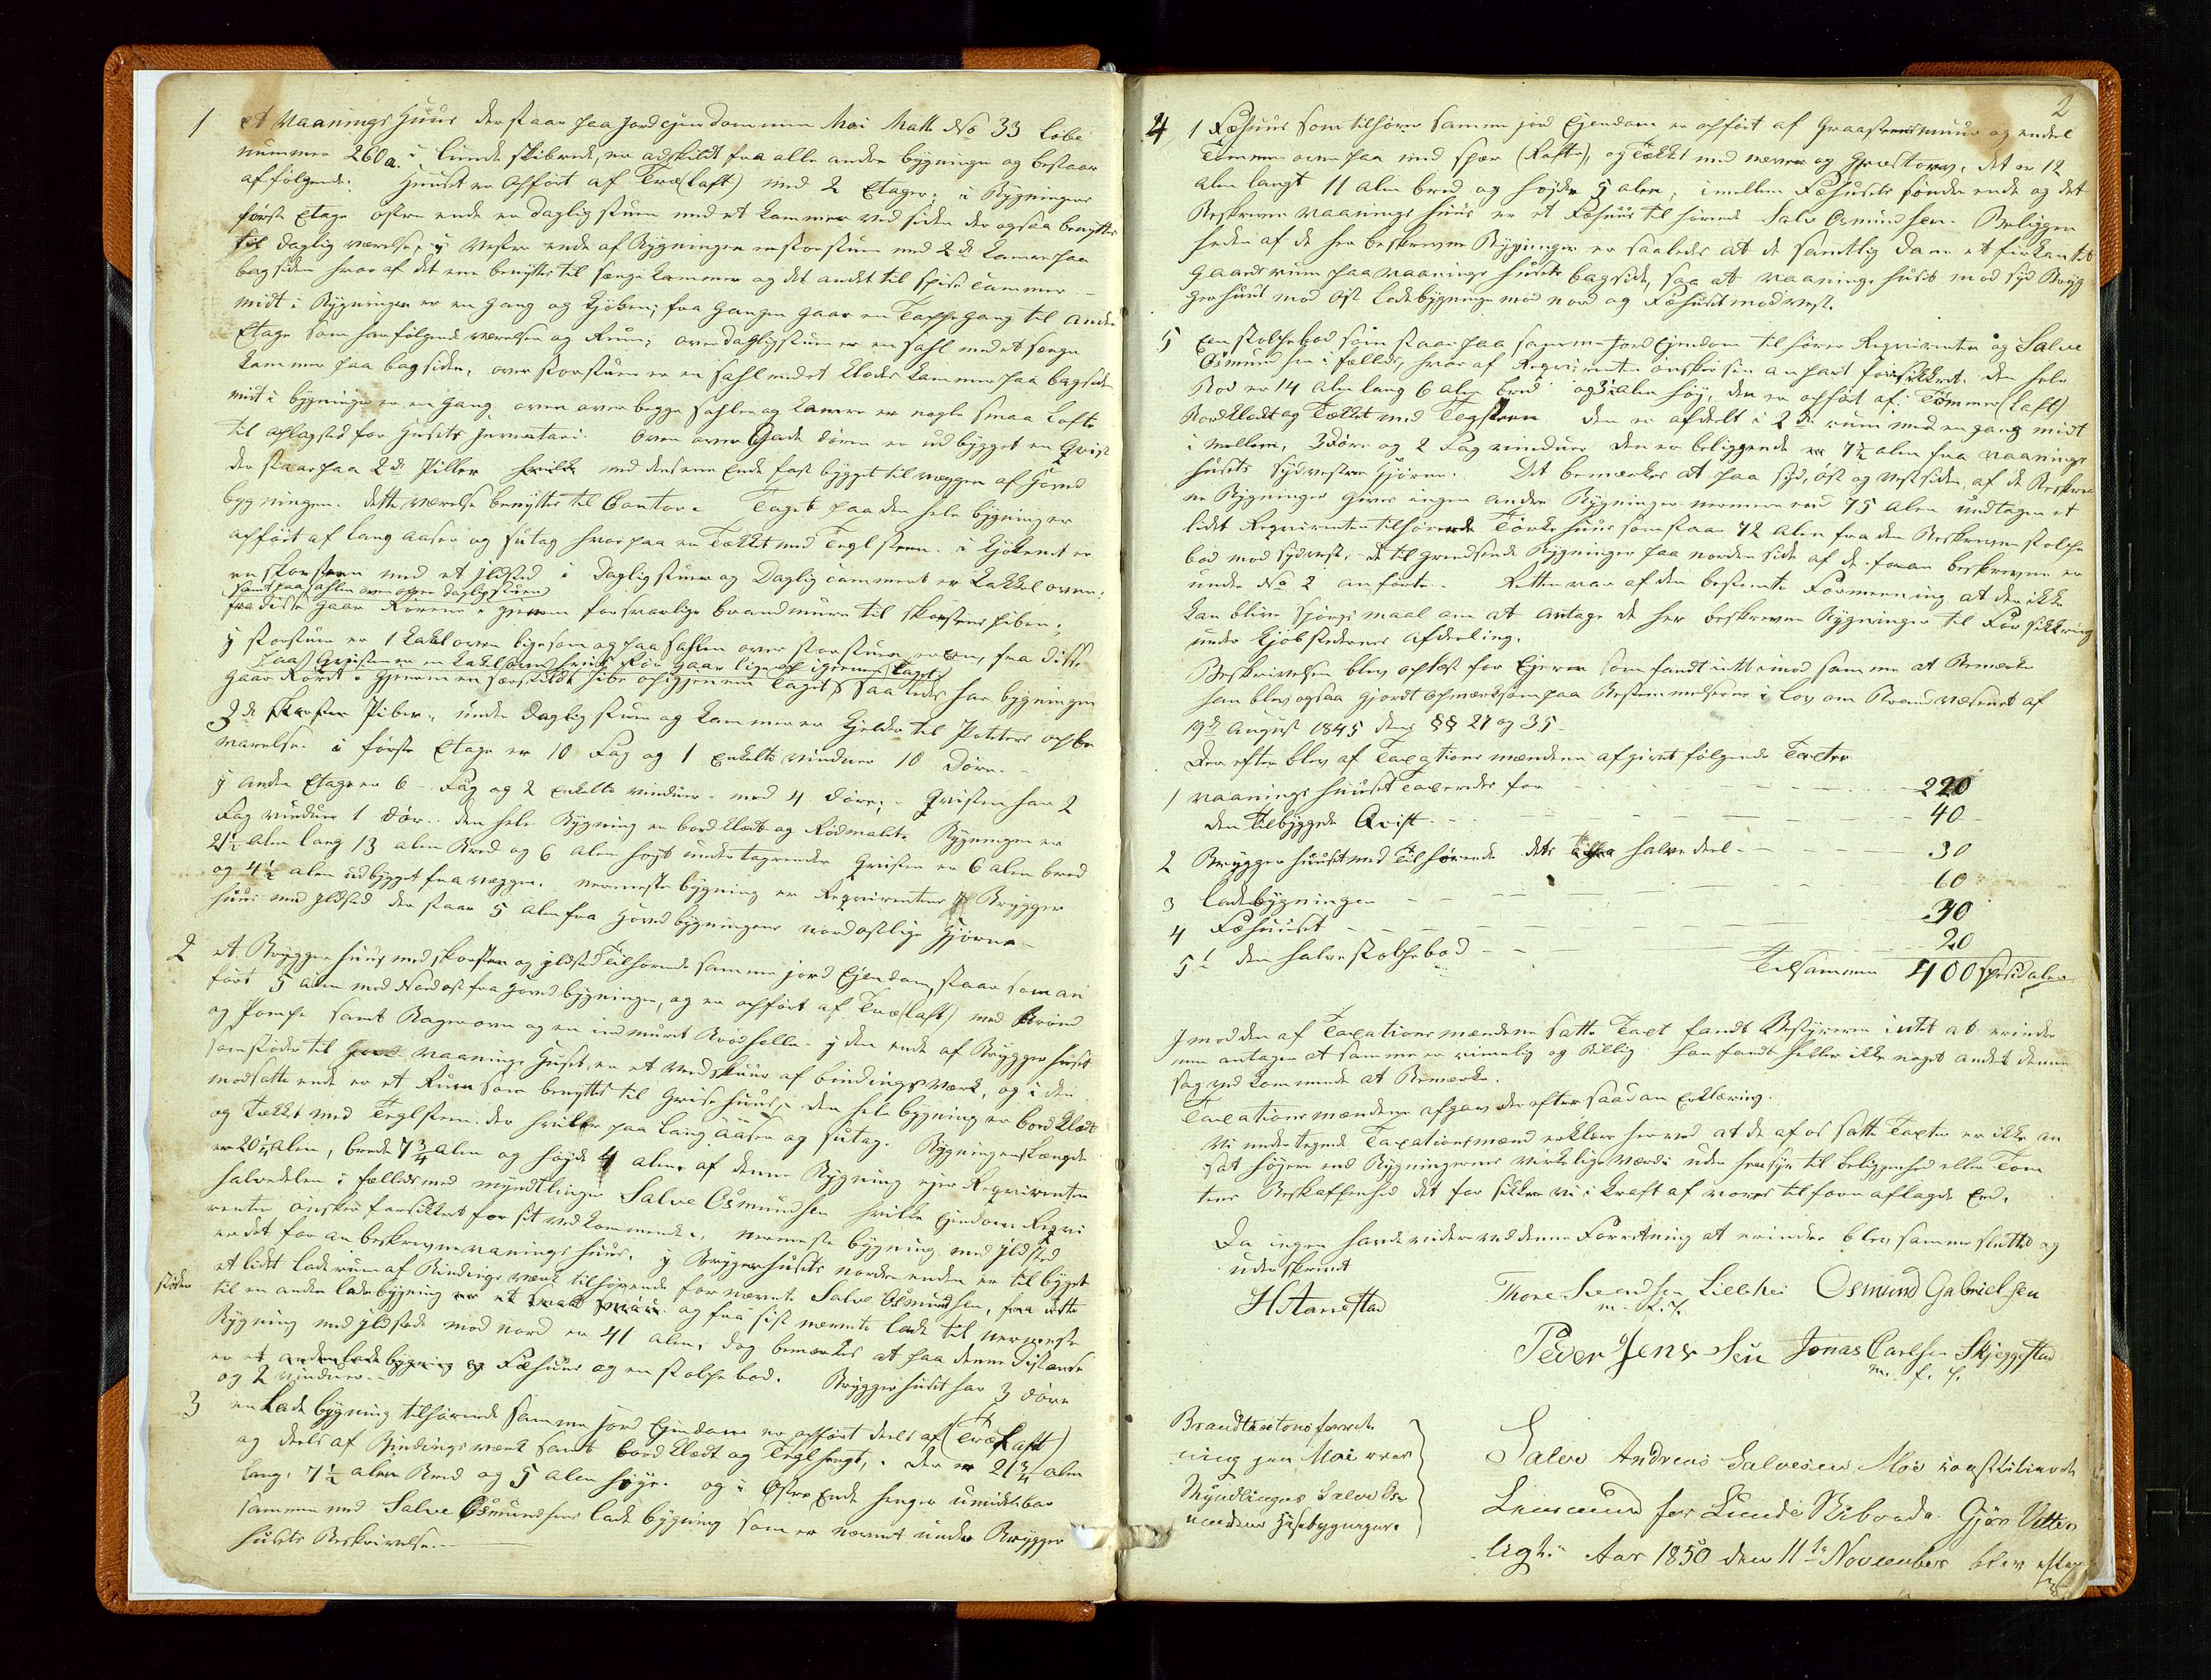 1 et Vaanings Huus der staar paa Jordejendommen Moi Matl No 33 Løbe
nummer 260a. i Lunde skibrede, er adskildt fra alle andre bygninger og bestaar
af følgende: Huuset er Opført af Træ (Laft) med 2 Etager; i Bygningens
første Etage østre ende en Daglig stuen med et Kammer ved siden der ogsaa benyttes
til daglig værelse, i Vestre ende af Bygningen en storstuen med 2de Kamre paa
bagsiden hvoraf det ene benyttes til senge Kammer og det andet til spisecammer
midt i Bygningen er en Gang og Kjøken; fra Gangen gaar en Trappegang til Anden
Etage som har følgende værelser og Rum; over dagligstuen er en sahl med et senge
Kammer paa bagsiden, over storstuen er en sahl med et Klæde Kammer paa bagsiden
midt i bygningen er en Gang oven over begge sahler og Kamre er nogle smaa Lofte
til oplagsted for Husets Inventari. Oven over Gade døren er udbygget en Qvist
der staar paa 2de Piller hvilke med dens ene Ende fast bygget til væggen af Hoved
bygningen. dette værelse benyttes til Contor. Taget paa den hele bygning er
opført af lang aaser og sutag hvorpaa er Tækket med Teglsteen. i Kjøkenet er
en skorsteen med et Ildsted i Daglig stuen og Daglig cammeret er Kakkelovne;
samt paa sahlen oven over dagligstuen
fra disse gaar Rørene i gjennem forsvarlige brandmure til skorstens piben;
i storstuen er 1 Kakelovn ligesom og paa sahlen over storstuen er en, fra disse
paa Qvisten er en Kakelovn hvis Rør gaar lige op igjennem Taget
gaar Røret i gjennem en særskildt pibe op igjennem Taget saaledes har bygningen
3de skorsten Piber, under Daglig stuen og Kammer er Kjelder til Poteters opbe
varelse. i første Etage er 10 Fag og 1 Enkelte vinduer 10 Døre.
i anden Etage er 6 Fag og 2 enkelte vinduer med 4 døre; Qvisten har 2
Fag vinduer 1 dør. den hele Bygning er bordklædt og Rødmalt. Bygningen er
21½ alen lang 13 alen Bred og 6 alen højt under tagrender Qvisten er 6 alen bred
og 4½ alen udbygget fra væggen. nermeste bygning er Reqvirentens Brygger
huus med Ildsted der staar 5 alen fra Hovedbygningens nordostlige Hjørne
2 et Brygger huus med skorsten og Ildsted Tilhørende samme jord Ejendom, staar som an
ført 5 alen mod Nordost fra Hoved bygningen, og er opført af Træ (Laft) med Brønd
og Pompe samt Bagerovn og en indmuret Brødhelle. i den ende af Bryggerhuset
som støder til Vaanings Huset, er et Vedskuur af bindingsværk, og i den
modsatte ende er et Rum som benyttes til Grisehuus, den hele bygning er bordklædt
og Tækket med Teglsteen der hviler paa lang aaser og sutag. Bygningens Længde
er 20½ alen, brede 7¾ alen og højde 4 alen, af denne Bygning ejer Reqvirenten
halvedelen i fælles med myndtlingen Salve Osmundsen hvilke Ejendom Reqvi
renten ønsker forsikkert for sit ved kommende, nermeste bygning med Ildsted
er det foran beskrevne vaanings huus. i Bryggerhusets nordre enden er til bygget
et lidet Laderum af Bindings værk tilhørende for nævnte Salve Osmundsen, fra dette
støder
til en anden ladebygning og fra sist nævnte lade til nermeste
Bygning med Ildsted mod nord er 41 alen; dog bemærkes at paa denne Distanse
er et anden ladebygning og Fæhuus og en stolpebod. Bryggerhuset har 3 døre
og 2 vinduer.
3 en Ladebygning tilhørende samme Jord Ejendom er opført deels af (Træ Laft)
og deels af Bindingsværk samt bordklædt og Teglhengt, den er 21¾ alen
lang, 7½ alen Bred og 5 alen Høye. og i Østre Ende henger umidelbar
sammen med Salve Osmundsens ladebygning som er nævnt under Brygger
husets Beskrivelse.
2
4 1 Fæhuus som tilhører samme jord Ejendom er opført af Graasteensmuur og endel
Tømmer oven paa med spær (Rafte), og Tækket med næver og Græstorv, det er 12
alen langt 11 alen bred og højde 5 alen; imellem Fæhusets søndre ende og det
Beskrevne vaanings huus er et Fæhuus tilhørende Salve Osmundsen. Beliggen
heden af de her beskrevne Bygninger er saaledes at de samtlig danne et firkantet
Gaardsrum paa vaanings husets bagside, saa at vaanings huset mod syd Bryg
gerhuus mod Øst Ladebygningen mod nord og Fæhuset mod vest.
5 Een stolpebod som staar paa samme Jord Ejendom tilhører Reqvirenten og Salve
Osmundsen i fælleds, hvoraf Reqvirenten ønsker sin anpart forsikkert. den hele
Bod er 14 alen lang 6 alen bred og 3½ alen høy, den er opført af Tømmer (Laft)
Bordklædt og Tækket med Teglsteen den er afdelt i 2de rum med en gang midt
imellem, 3 døre og 2 Fag vinduer den er beliggende 7½ alen fra vaanings
husets sydvestre Hjørne. Det bemærkes at paa syd, øst og Vestsiden af de Beskrev
ne Bygninger gives ingen andre Bygninger nermere end 75 alen undtagen et
lidet Reqvirenten tilhørende Tørkehuus som staar 72 alen fra den Beskrevne stolpe
bod mod sydvest, de tilgrendsende Bygninger paa nordre side af de foran beskrevne er
under No 2 anførte. Retten var af den bestemte Formeening at der ikke
kan blive spørgsmaal om at antage de her beskrevne Bygninger til Forsikkring
under Kjøbstedernes afdeeling.
Beskrivelsen blev oplæst for Ejeren som fandt intet imod samme at Bemærke
han blev ogsaa gjordt opmærksom paa Bestemmelserne i Lov om Brandvæsenet af
19de August 1845 dens §§ 27 og 35.
Derefter blev af Taxationsmændene afgivet følgende Taxter
1 vaanings huuset Taxeredes for 220
den tilbyggede Qvist 40
2 Bryggerhuuset med Tilhørende dets halve deel 30
3 Ladebygningen 60
4 Fæhuuset 30
5t den halve stolpebod 20
Tilsammen 400 Spesidaler
Imod den af Taxationsmændene satte Taxt fandt Bestyreren intet at erindre
men antager at samme er rimelig og Billig han fandt heller ikke noget andet denne
sag ved kommende at Bemærke.
Taxationsmændene afgav derefter saadan Erklæring.
Vi undertegnede Taxationsmænd erklære herved at de af os satte Taxter er ikke an
sat højere end Bygningernes virkelige Værdi uden hensyn til Beliggenhed eller Tom
tens Beskaffenhed det for sikkrer vi i kraft af vores tilforn aflagde Eed.
Da ingen havde videre ved denne Forretning at erindre blev samme sluttet og
underskrevet
H Stanestad
Thore Svendsen Lillehei Osmund Gabrielsen
m. P. P.
Peder Jens Søn Jonas Carlsen Skjeggestad
m. f. P.
Brandtaxtions forret
ning paa Moi over
Myndlingen Salve Os
mundsens Husebygninger.
Salve Andreas Salvesen Moi constitueret
Lensmand for Lunde Skibrede. Gjør Vitter
ligt: Aar 1850 den 11te November blev efter